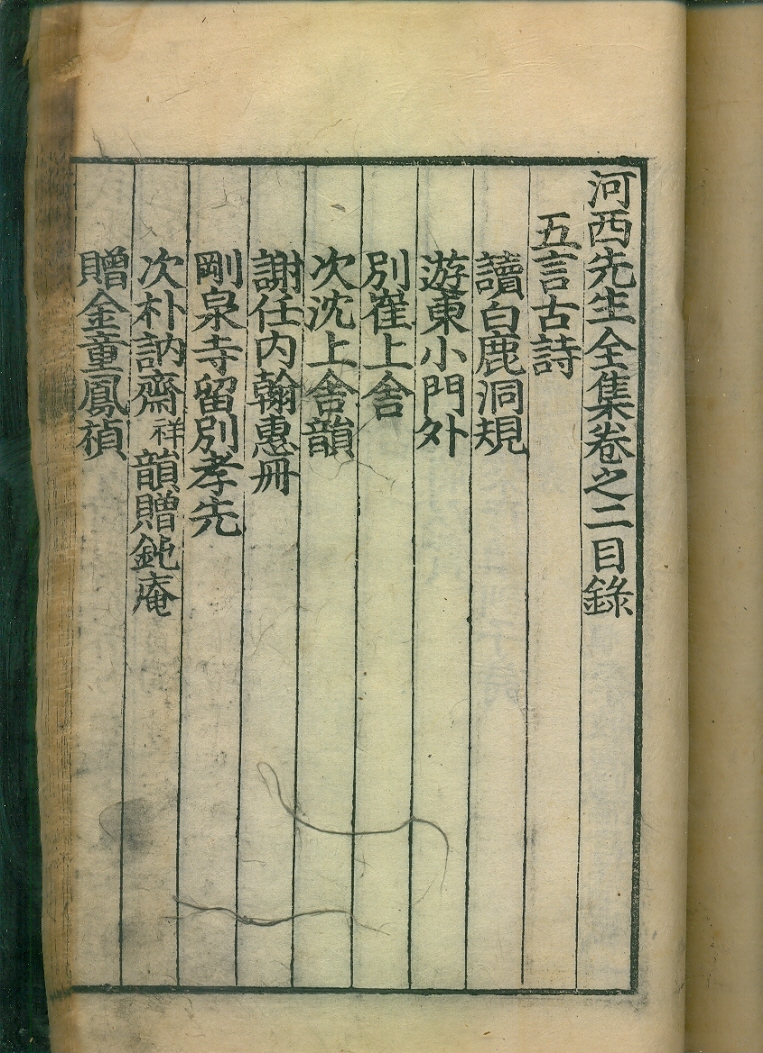 河西先生全集卷之二目錄
五言古詩
讀白鹿洞規
游東小門外
別崔上舍
次沈上舍韻
謝任內翰惠冊
剛泉寺留別孝先
次朴訥齋祥韻贈鈍庵
贈金童鳳禎